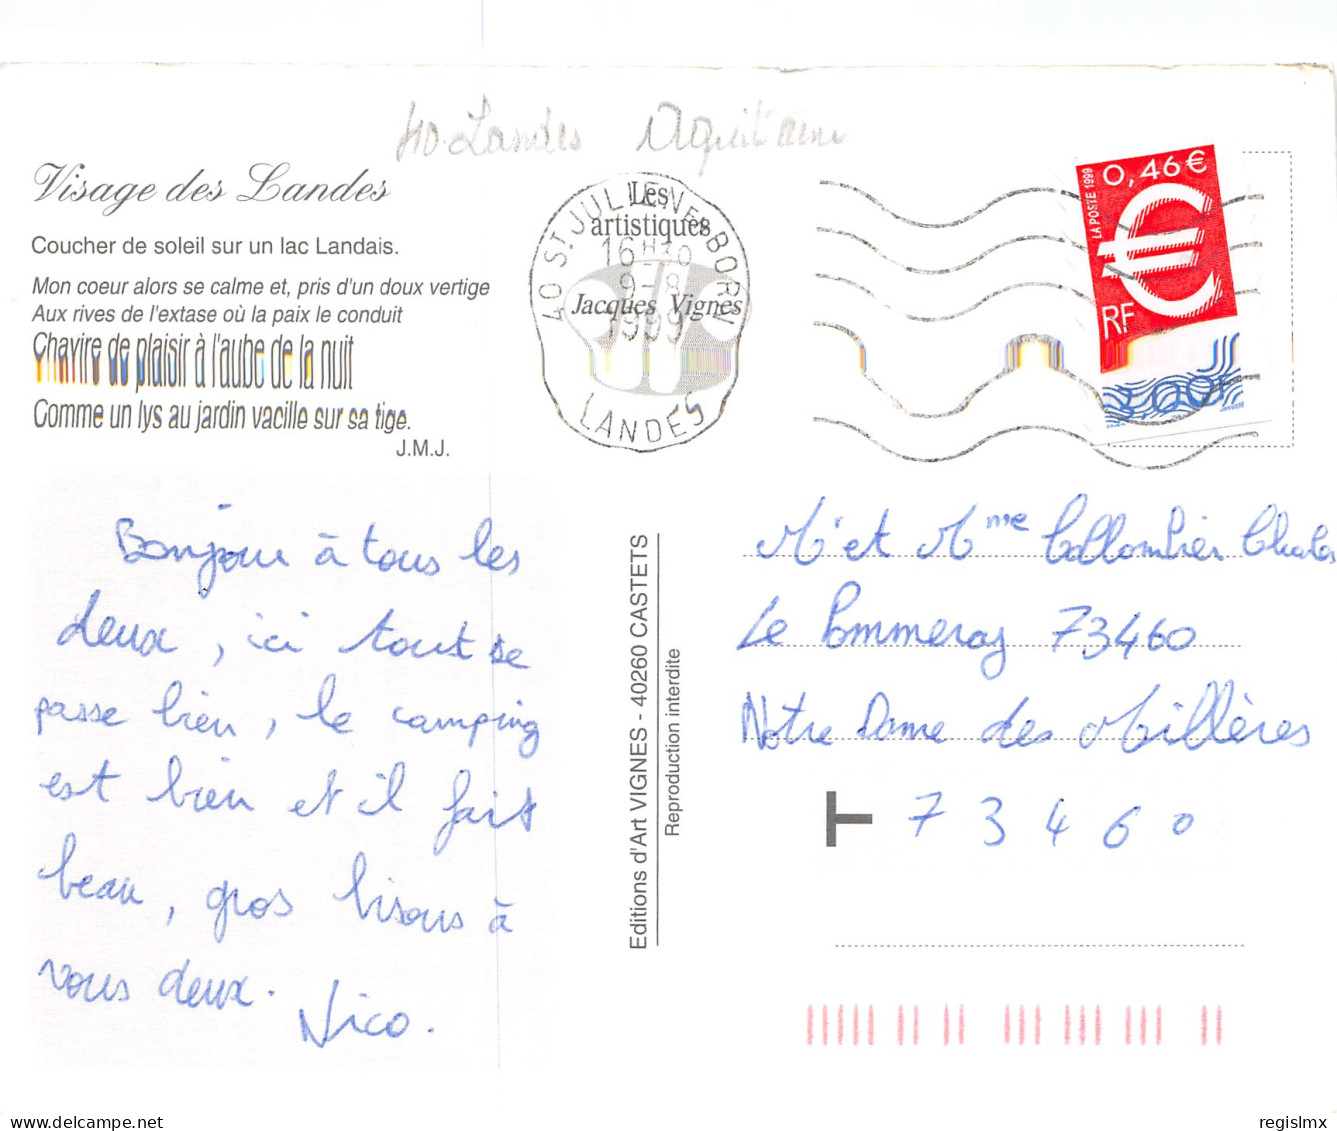 40. Landes Aquitaine
Visage des Landes
Coucher de soleil sur un lac Landais.
Mon coeur alors se calme et, pris d'un doux vertige
Aux rives de l'extase où la paix le conduit
Chavire de plaisir à l'aube de la nuit
Comme un lys au jardin vacille sur sa tige.
J.M.J.
Les
artistiques
Jacques Vignes
40 ST JULIEN EN BORN
16 H
9-8
1999
LANDES
0,46 €
LA POSTE 1999
RF
3,00F
Bonjour à tous les
deux, ici tout se
passe bien, le camping
est bien et il fait
beau, gros bisous à
vous deux.
Nico.
Editions d'Art VIGNES - 40260 CASTETS
Reproduction interdite
Mr et Mme Collombier Charles
Le Pommeray 73460
Notre Dame des Millères
T 73460
regislmx